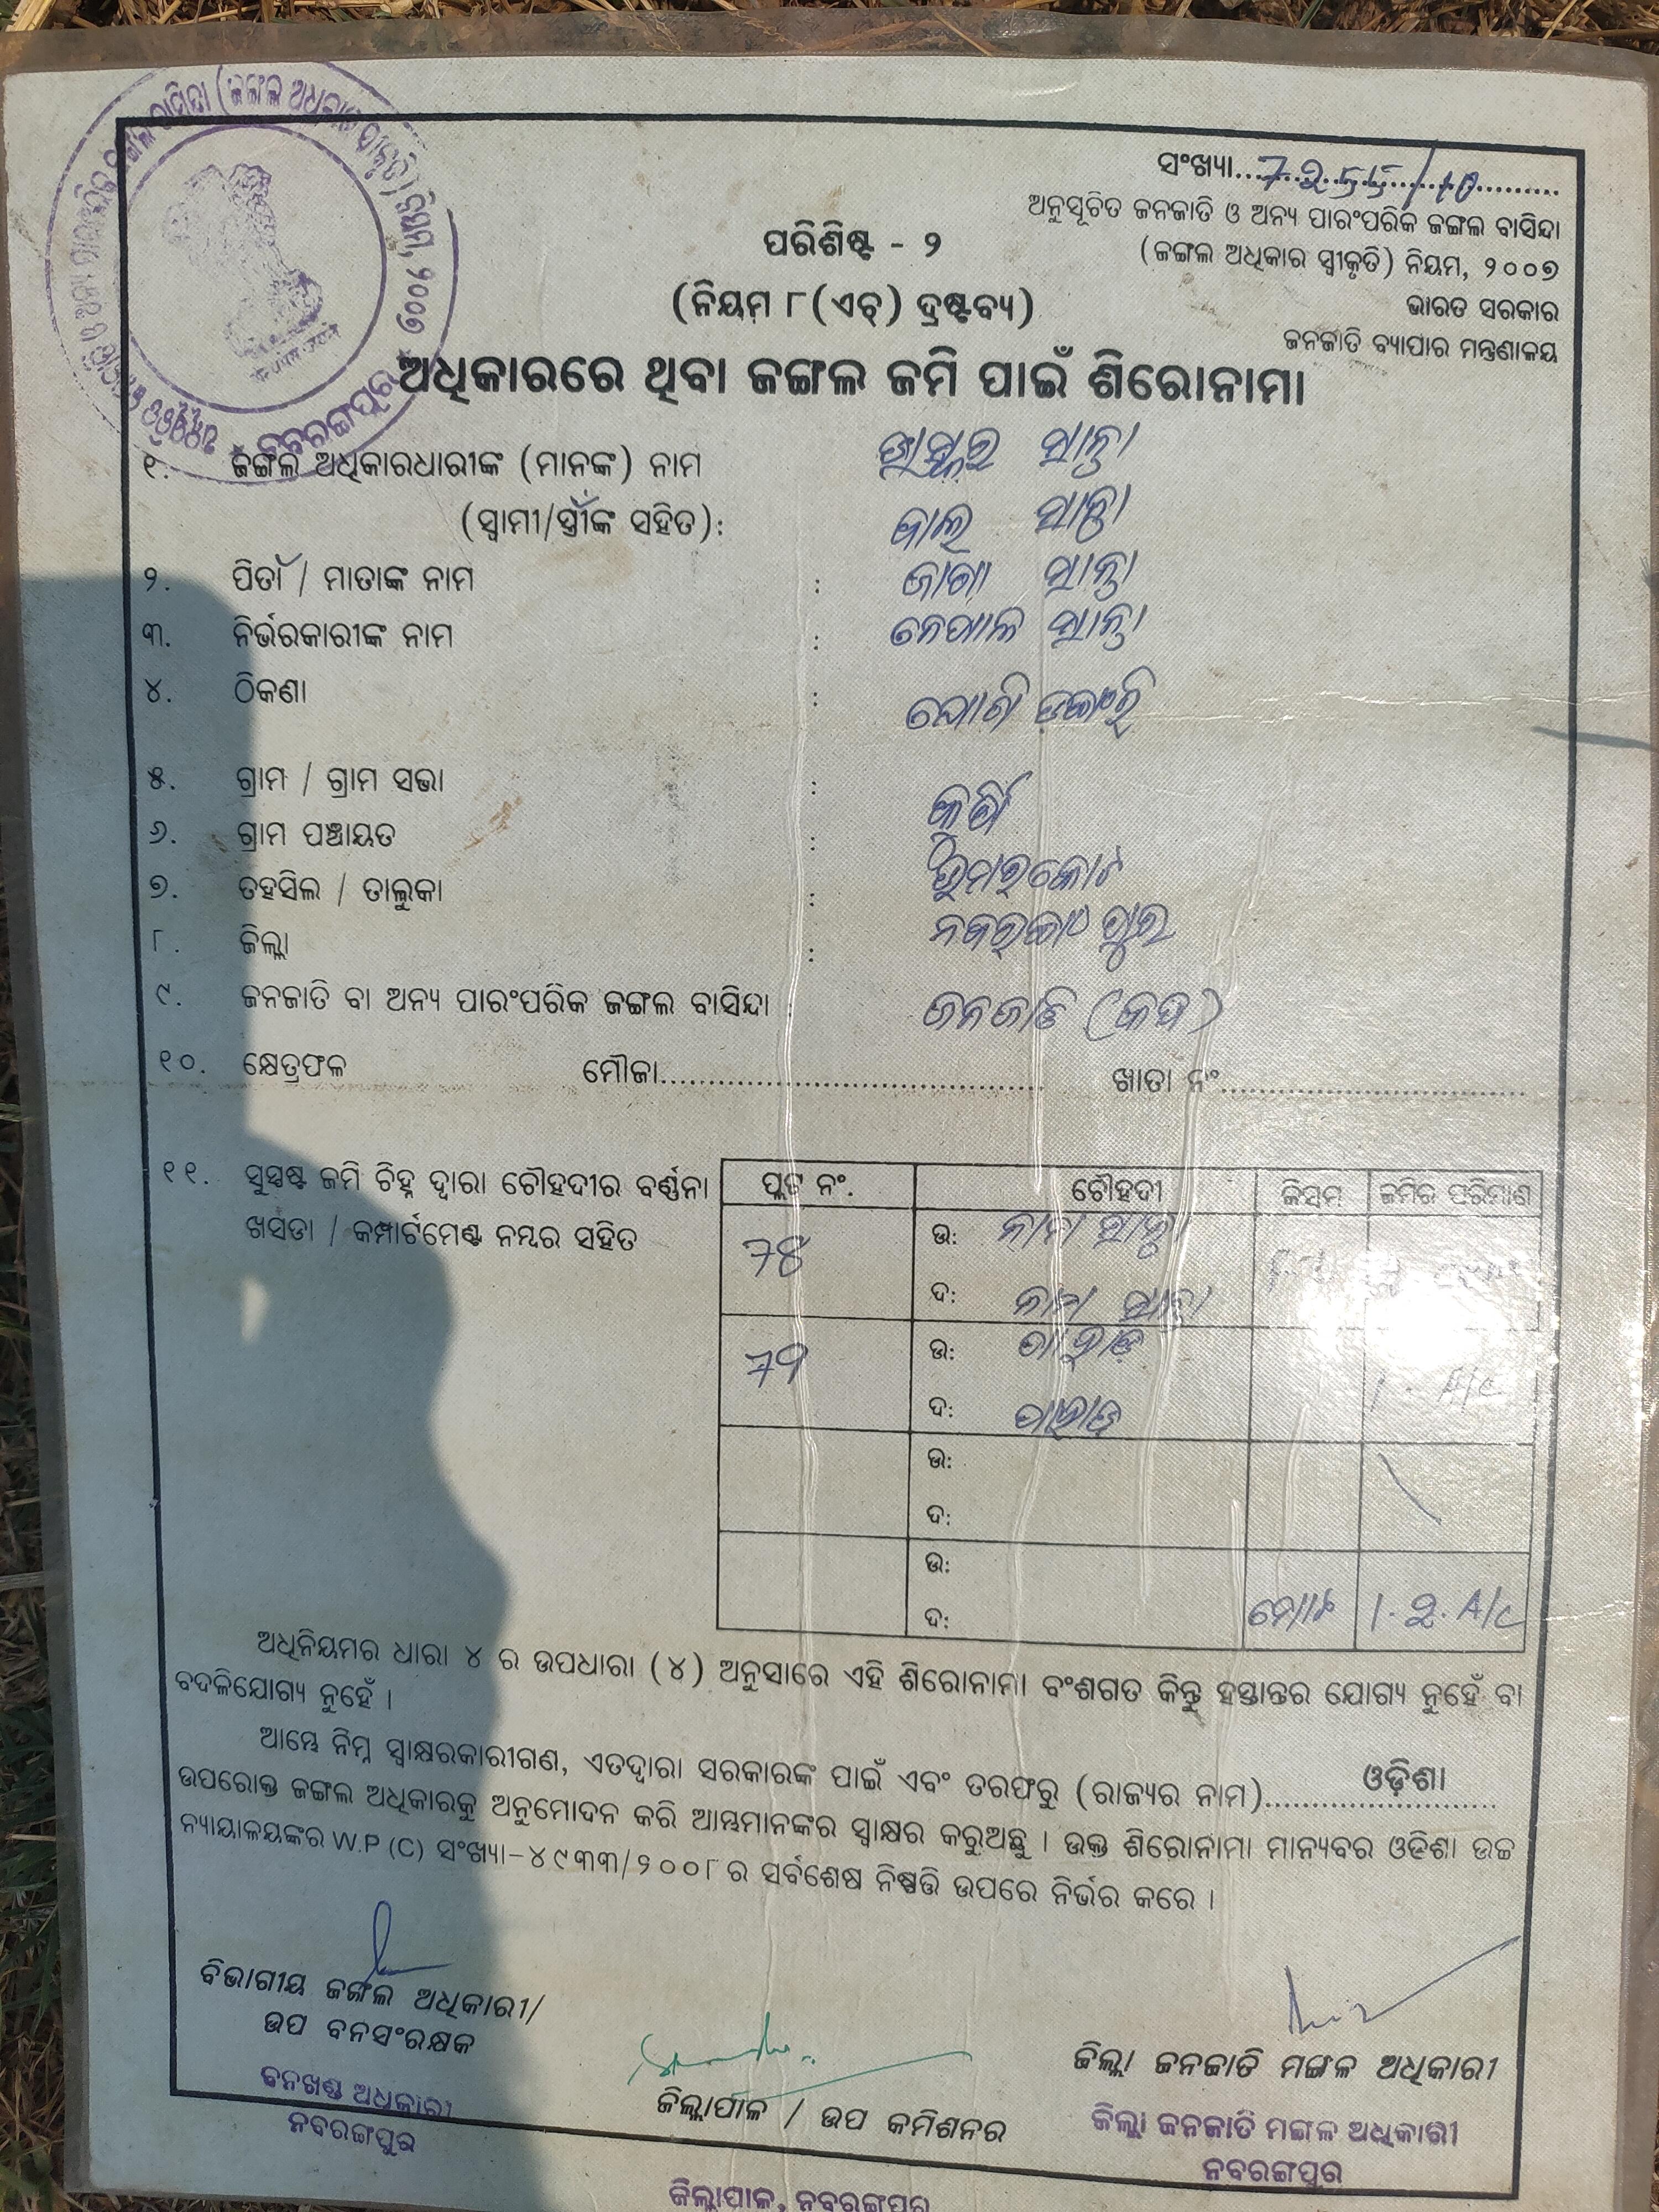 ସଂଖ୍ୟା..............................
ଅନୁସୂଚିତ ଜନଜାତି ଓ ଅନ୍ୟ ପାରଂପରିକ ଜଙ୍ଗଲ ବାସିନ୍ଦା
(ଜଙ୍ଗଲ ଅଧିକାର ସ୍ୱୀକୃତି) ନିୟମ, ୨୦୦୭
ଭାରତ ସରକାର
ଜନଜାତି ବ୍ୟାପାର ମନ୍ତ୍ରଣାଳୟ
ପରିଶିଷ୍ଟ - ୨
(ନିୟମ ୮(ଏଚ୍) ଦ୍ରଷ୍ଟବ୍ୟ)
ଅଧିକାରରେ ଥିବା ଜଙ୍ଗଲ ଜମି ପାଇଁ ଶିରୋନାମା
୧. ଜଙ୍ଗଲ ଅଧିକାରଧାରୀଙ୍କ (ମାନଙ୍କ) ନାମ
(ସ୍ୱାମୀ/ସ୍ତ୍ରୀଙ୍କ ସହିତ):
୨. ପିତା / ମାତାଙ୍କ ନାମ :
୩. ନିର୍ଭରକାରୀଙ୍କ ନାମ : ନେପାଳ
୪. ଠିକଣା :
୫. ଗ୍ରାମ / ଗ୍ରାମ ସଭା :
୬. ଗ୍ରାମ ପଞ୍ଚାୟତ :
୭. ତହସିଲ / ତାଲୁକା : ଉମରକୋଟ
୮. ଜିଲ୍ଲା : ନବରଙ୍ଗପୁର
୯. ଜନଜାତି ବା ଅନ୍ୟ ପାରଂପରିକ ଜଙ୍ଗଲ ବାସିନ୍ଦା : ଜନଜାତି
୧୦. କ୍ଷେତ୍ରଫଳ ମୌଜା........................................ ଖାତା ନଂ................................
୧୧. ସୁସ୍ପଷ୍ଟ ଜମି ଚିହ୍ନ ଦ୍ୱାରା ଚୌହଦୀର ବର୍ଣ୍ଣନା
ଖସଡା / କମ୍ପାର୍ଟମେଣ୍ଟ ନମ୍ବର ସହିତ
ପ୍ଲଟ ନଂ. ଚୌହଦୀ କିସମ ଜମିର ପରିମାଣ
ଉ:
ଦ:
ଉ: ପାହାଡ଼
ଦ: ପାହାଡ଼
ଉ:
ଦ:
ଉ:
ଦ: ମୋଟ
ଅଧିନିୟମର ଧାରା ୪ ର ଉପଧାରା (୪) ଅନୁସାରେ ଏହି ଶିରୋନାମା ବଂଶଗତ କିନ୍ତୁ ହସ୍ତାନ୍ତର ଯୋଗ୍ୟ ନୁହେଁ ବା
ବଦଳିଯୋଗ୍ୟ ନୁହେଁ ।
ଆମ୍ଭେ ନିମ୍ନ ସ୍ୱାକ୍ଷରକାରୀଗଣ, ଏତଦ୍ୱାରା ସରକାରଙ୍କ ପାଇଁ ଏବଂ ତରଫରୁ (ରାଜ୍ୟର ନାମ)........ଓଡ଼ିଶା........
ଉପରୋକ୍ତ ଜଙ୍ଗଲ ଅଧିକାରକୁ ଅନୁମୋଦନ କରି ଆମ୍ଭମାନଙ୍କର ସ୍ୱାକ୍ଷର କରୁଅଛୁ । ଉକ୍ତ ଶିରୋନାମା ମାନ୍ୟବର ଓଡିଶା ଉଚ୍ଚ
ନ୍ୟାୟାଳୟଙ୍କର W.P (C) ସଂଖ୍ୟା-୪୯୩୩/୨୦୦୮ ର ସର୍ବଶେଷ ନିଷ୍ପତ୍ତି ଉପରେ ନିର୍ଭର କରେ ।
ବିଭାଗୀୟ ଜଙ୍ଗଲ ଅଧିକାରୀ/
ଉପ ବନସଂରକ୍ଷକ
ବନଖଣ୍ଡ ଅଧିକାରୀ
ନବରଙ୍ଗପୁର
ଜିଲ୍ଲାପାଳ / ଉପ କମିଶନର
ଜିଲ୍ଲାପାଳ, ନବରଙ୍ଗପୁର
ଜିଲ୍ଲା ଜନଜାତି ମଙ୍ଗଳ ଅଧିକାରୀ
ଜିଲ୍ଲା ଜନଜାତି ମଙ୍ଗଳ ଅଧିକାରୀ
ନବରଙ୍ଗପୁର